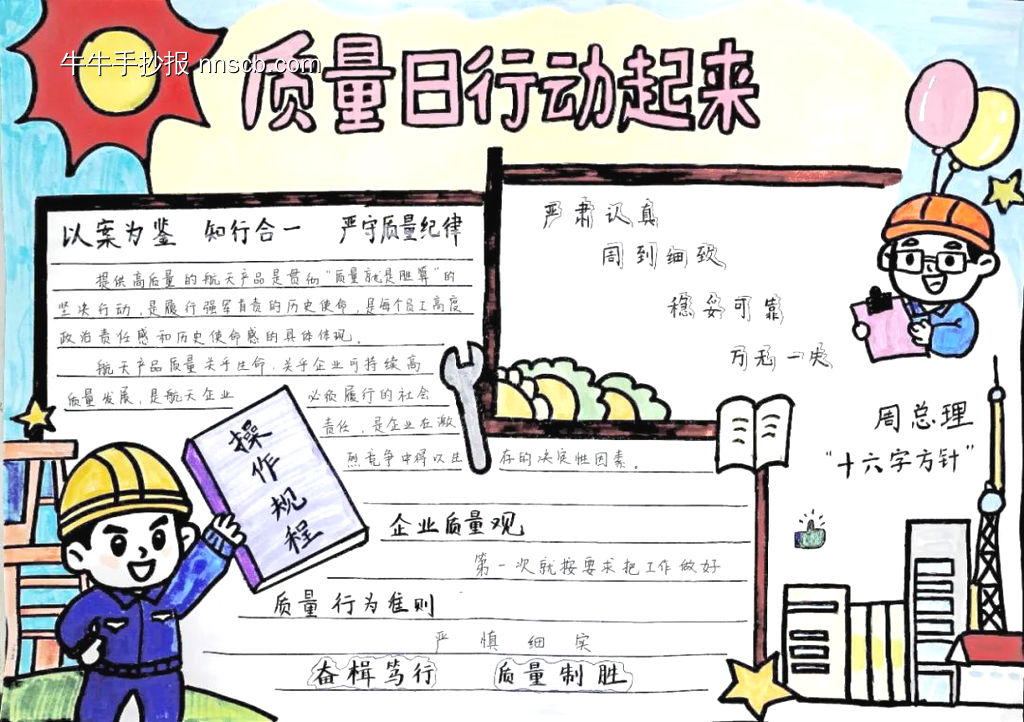 牛牛手抄报 nnscb.com
质量日行动起来
以案为鉴 知行合一 严守质量纪律
提供高质量的航天产品是贯彻“质量就是胆算”的
坚决行动,是履行强军首责的历史使命,是每个员工高度
政治责任感和历史使命感的具体体现。
航天产品质量关乎生命,关乎企业可持续高
质量发展,是航天企业 必须履行的社会
责任,是企业在激
烈竞争中得以生 存的决定性因素。
企业质量观
第一次就按要求把工作做好
质量行为准则
严慎细实
奋楫笃行 质量制胜
操作规程
严肃认真
周到细致
稳妥可靠
万无一失
周总理
“十六字方针”